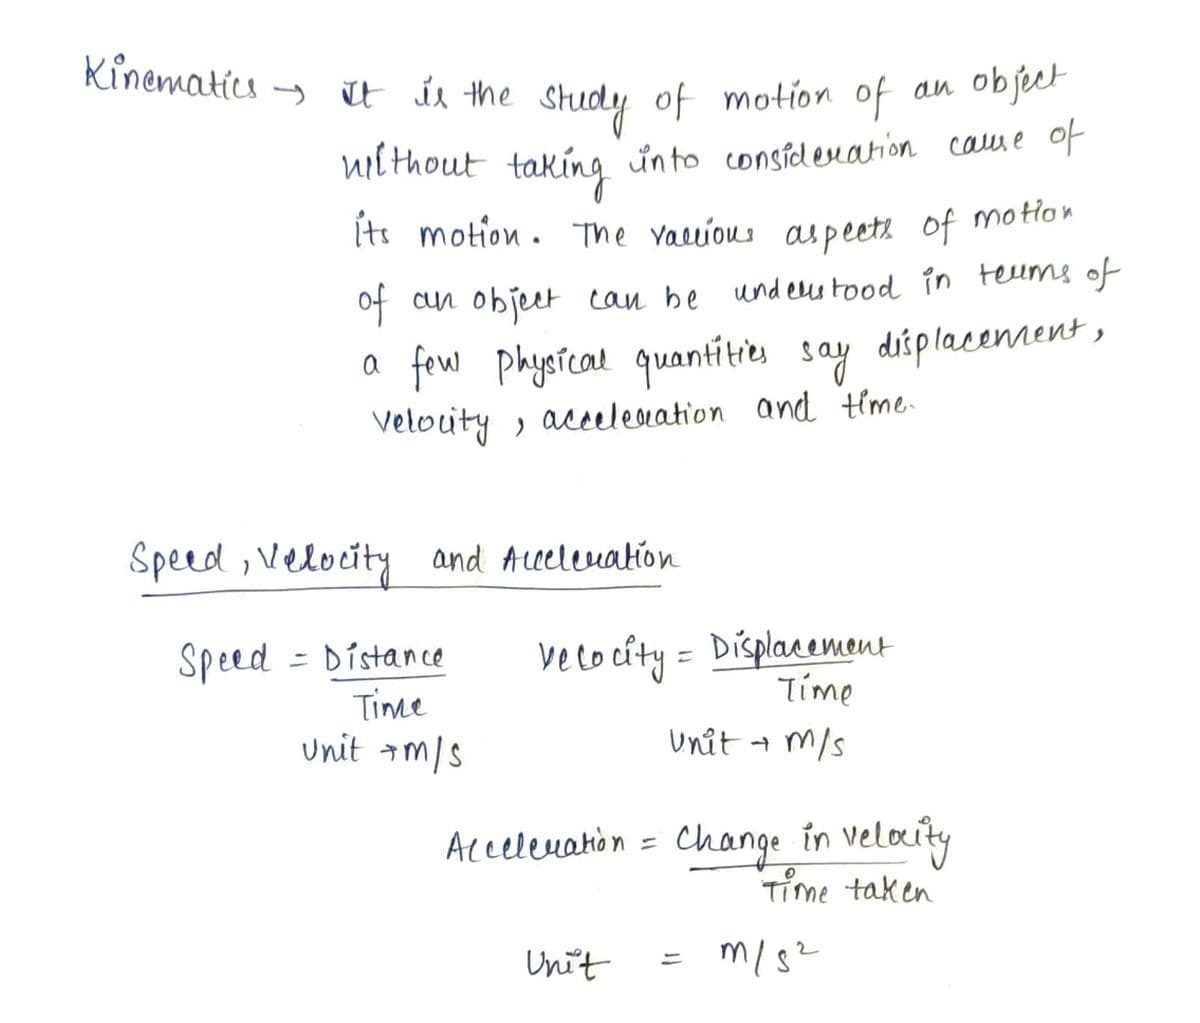 Kinematics → It is the study of motion of an object
without taking into consideration cause of
its motion. The various aspects of motion
of an object can be understood in terms of
a few physical quantities say displacement,
velocity, acceleration and time.
Speed, Velocity and Acceleration
Speed = Distance / Time
Unit → m/s
Velocity = Displacement / Time
Unit → m/s
Acceleration = Change in velocity / Time taken
Unit = m/s²